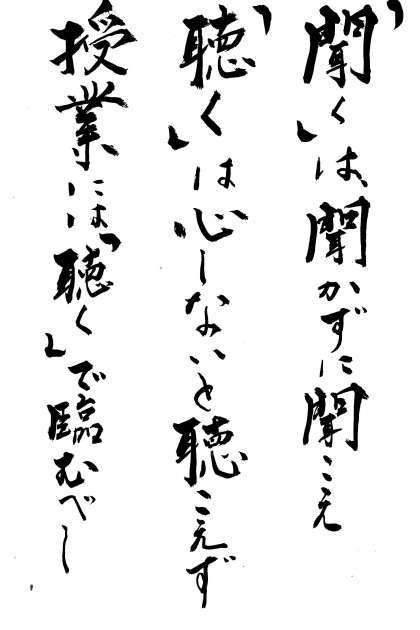 「聞く」は、聞かずに聞こえ
「聴く」は心しないと聴こえず
授業には「聴く」で臨むべし